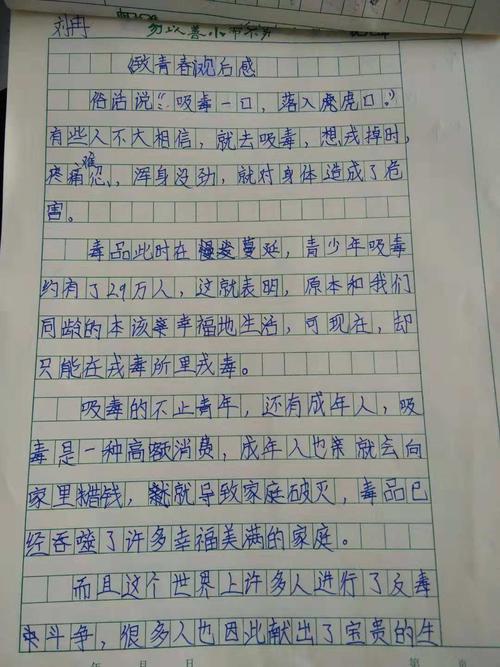 刘冉
勿以善小而不为
《致青春》观后感
俗话说："吸毒一口，落入虎口。"
有些人不大相信，就去吸毒，想戎掉时，
疼痛难忍，浑身没劲，就对身体造成了危
害。
毒品此时在蔓延，青少年吸毒
约有了29万人，这就表明，原本和我们
同龄的本该幸福地生活，可现在，却
只能在戎毒所里戎毒。
吸毒的不止青年，还有成年人，吸
毒是一种高额消费，成年人也就会向
家里借钱，就导致家庭破灭，毒品已
经吞噬了许多幸福美满的家庭。
而且这个世界上许多人进行了反毒
斗争，很多人也因此献出了宝贵的生
年 月 日 第 页